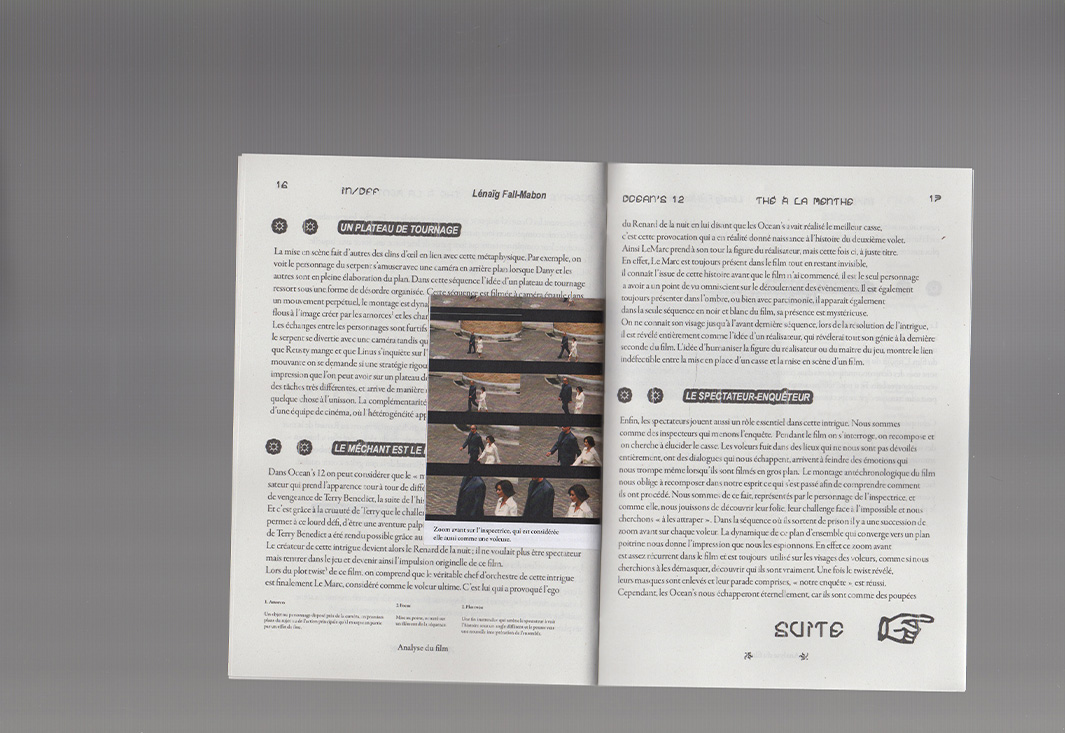 16
IN/OFF
Lénaïg Fall-Mabon
UN PLATEAU DE TOURNAGE
La mise en scène fait d'autres des clins d'œil en lien avec cette métaphysique. Par exemple, on
voit le personnage du serpent s'amuser avec une caméra en arrière plan lorsque Dany et les
autres sont en pleine élaboration du plan. Dans cette séquence l'idée d'un plateau de tournage
ressort sous une forme de désordre organisée. Cette séquence est filmée à caméra épaule dans
un mouvement perpétuel, le montage est dyna
flous à l'image créer par les amorces¹ et les char
Les échanges entre les personnages sont furtifs
le serpent se divertie avec une caméra tandis qu
que Reusty mange et que Linus s'inquiète sur l'
mouvance on se demande si une stratégie rigou
impression que l'on peut avoir sur un plateau d
des tâches très différentes, et arrive de manière
quelque chose à l'unisson. La complémentarité
d'une équipe de cinéma, où l'hétérogénéité app
LE MÉCHANT EST LE
Dans Ocean's 12 on peut considérer que le « m
sateur qui prend l'apparence tour à tour de diffé
de vengeance de Terry Benedict, la suite de l'his
Et c'est grâce à la cruauté de Terry que le challe
permet à ce lourd défi, d'être une aventure palp
de Terry Benedict a été rendu possible grâce au
Le créateur de cette intrigue devient alors le Renard de la nuit ; il ne voulait plus être spectateur
mais rentrer dans le jeu et devenir ainsi l'impulsion originelle de ce film.
Lors du plot twist³ de ce film, on comprend que le véritable chef d'orchestre de cette intrigue
est finalement Le Marc, considéré comme le voleur ultime. C'est lui qui a provoqué l'ego
Zoom avant sur l'inspectrice, qui est considérée
elle aussi comme une voleuse.
1. Amorces
2. Focus
3. Plot twist
Analyse du film
OCEAN'S 12
THÉ À LA MENTHE
17
du Renard de la nuit en lui disant que les Ocean's avait réalisé le meilleur casse,
c'est cette provocation qui a en réalité donné naissance à l'histoire du deuxième volet.
Ainsi LeMarc prend à son tour la figure du réalisateur, mais cette fois ci, à juste titre.
En effet, Le Marc est toujours présent dans le film tout en restant invisible,
il connaît l'issue de cette histoire avant que le film n'ai commencé, il est le seul personnage
a avoir a un point de vu omniscient sur le déroulement des évènements. Il est également
toujours présenter dans l'ombre, ou bien avec parcimonie, il apparaît également
dans la seule séquence en noir et blanc du film, sa présence est mystérieuse.
On ne connait son visage jusqu'à l'avant dernière séquence, lors de la résolution de l'intrigue,
il est révélé entièrement comme l'idée d'un réalisateur, qui révélerai tout son génie à la dernière
seconde du film. L'idée d'humaniser la figure du réalisateur ou du maître du jeu, montre le lien
indéfectible entre la mise en place d'un casse et la mise en scène d'un film.
LE SPECTATEUR-ENQUÊTEUR
Enfin, les spectateurs jouent aussi un rôle essentiel dans cette intrigue. Nous sommes
comme des inspecteurs qui menons l'enquête. Pendant le film on s'interroge, on recompose et
on cherche à élucider le casse. Les voleurs fuit dans des lieux qui ne nous sont pas dévoilés
entièrement, ont des dialogues qui nous échappent, arrivent à feindre des émotions qui
nous trompe même lorsqu'ils sont filmés en gros plan. Le montage antéchronologique du film
nous oblige à recomposer dans notre esprit ce qui s'est passé afin de comprendre comment
ils ont procédé. Nous sommes de ce fait, représentés par le personnage de l'inspectrice, et
comme elle, nous jouissons de découvrir leur folie, leur challenge face à l'impossible et nous
cherchons « à les attraper ». Dans la séquence où ils sortent de prison il y a une succession de
zoom avant sur chaque voleur. La dynamique de ce plan d'ensemble qui converge vers un plan
poitrine nous donne l'impression que nous les espionnons. En effet ce zoom avant
est assez récurrent dans le film et est toujours utilisé sur les visages des voleurs, comme si nous
cherchions à les démasquer, découvrir qui ils sont vraiment. Une fois le twist révélé,
leurs masques sont enlevés et leur parade comprises, « notre enquête » est réussi.
Cependant, les Ocean's nous échapperont éternellement, car ils sont comme des poupées
SUITE